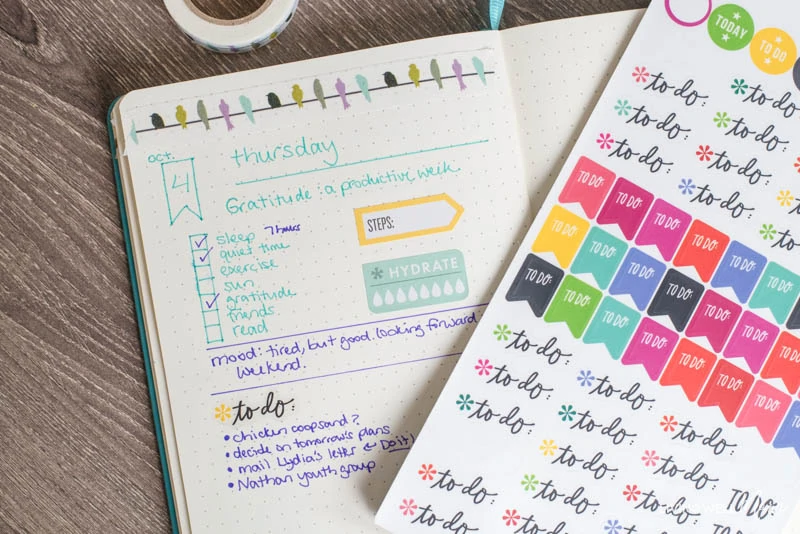 oct.
4
thursday
Gratitude: a productive week
sleep 7 hours
quiet time
exercise
sun
gratitude
friends
read
STEPS:
HYDRATE
mood: tired, but good. looking forward
weekend.
to do:
chicken coop sand?
decide on tomorrow's plans
mail Lydia's letter ← Do it!
Nathan youth group
TODAY
TO DO
to do: to do:
to do: to do:
to do: to do:
to do: to do:
TO DO: TO DO: TO DO: TO DO: TO DO: TO DO:
TO DO: TO DO: TO DO: TO DO: TO DO: TO DO: TO DO:
TO DO: TO DO: TO DO: TO DO: TO DO: TO DO: TO DO:
to do:
to do: to do:
to do: to do: to do:
to do: to do:
to do: to do: to do: TO DO:
to do: to do: to do: